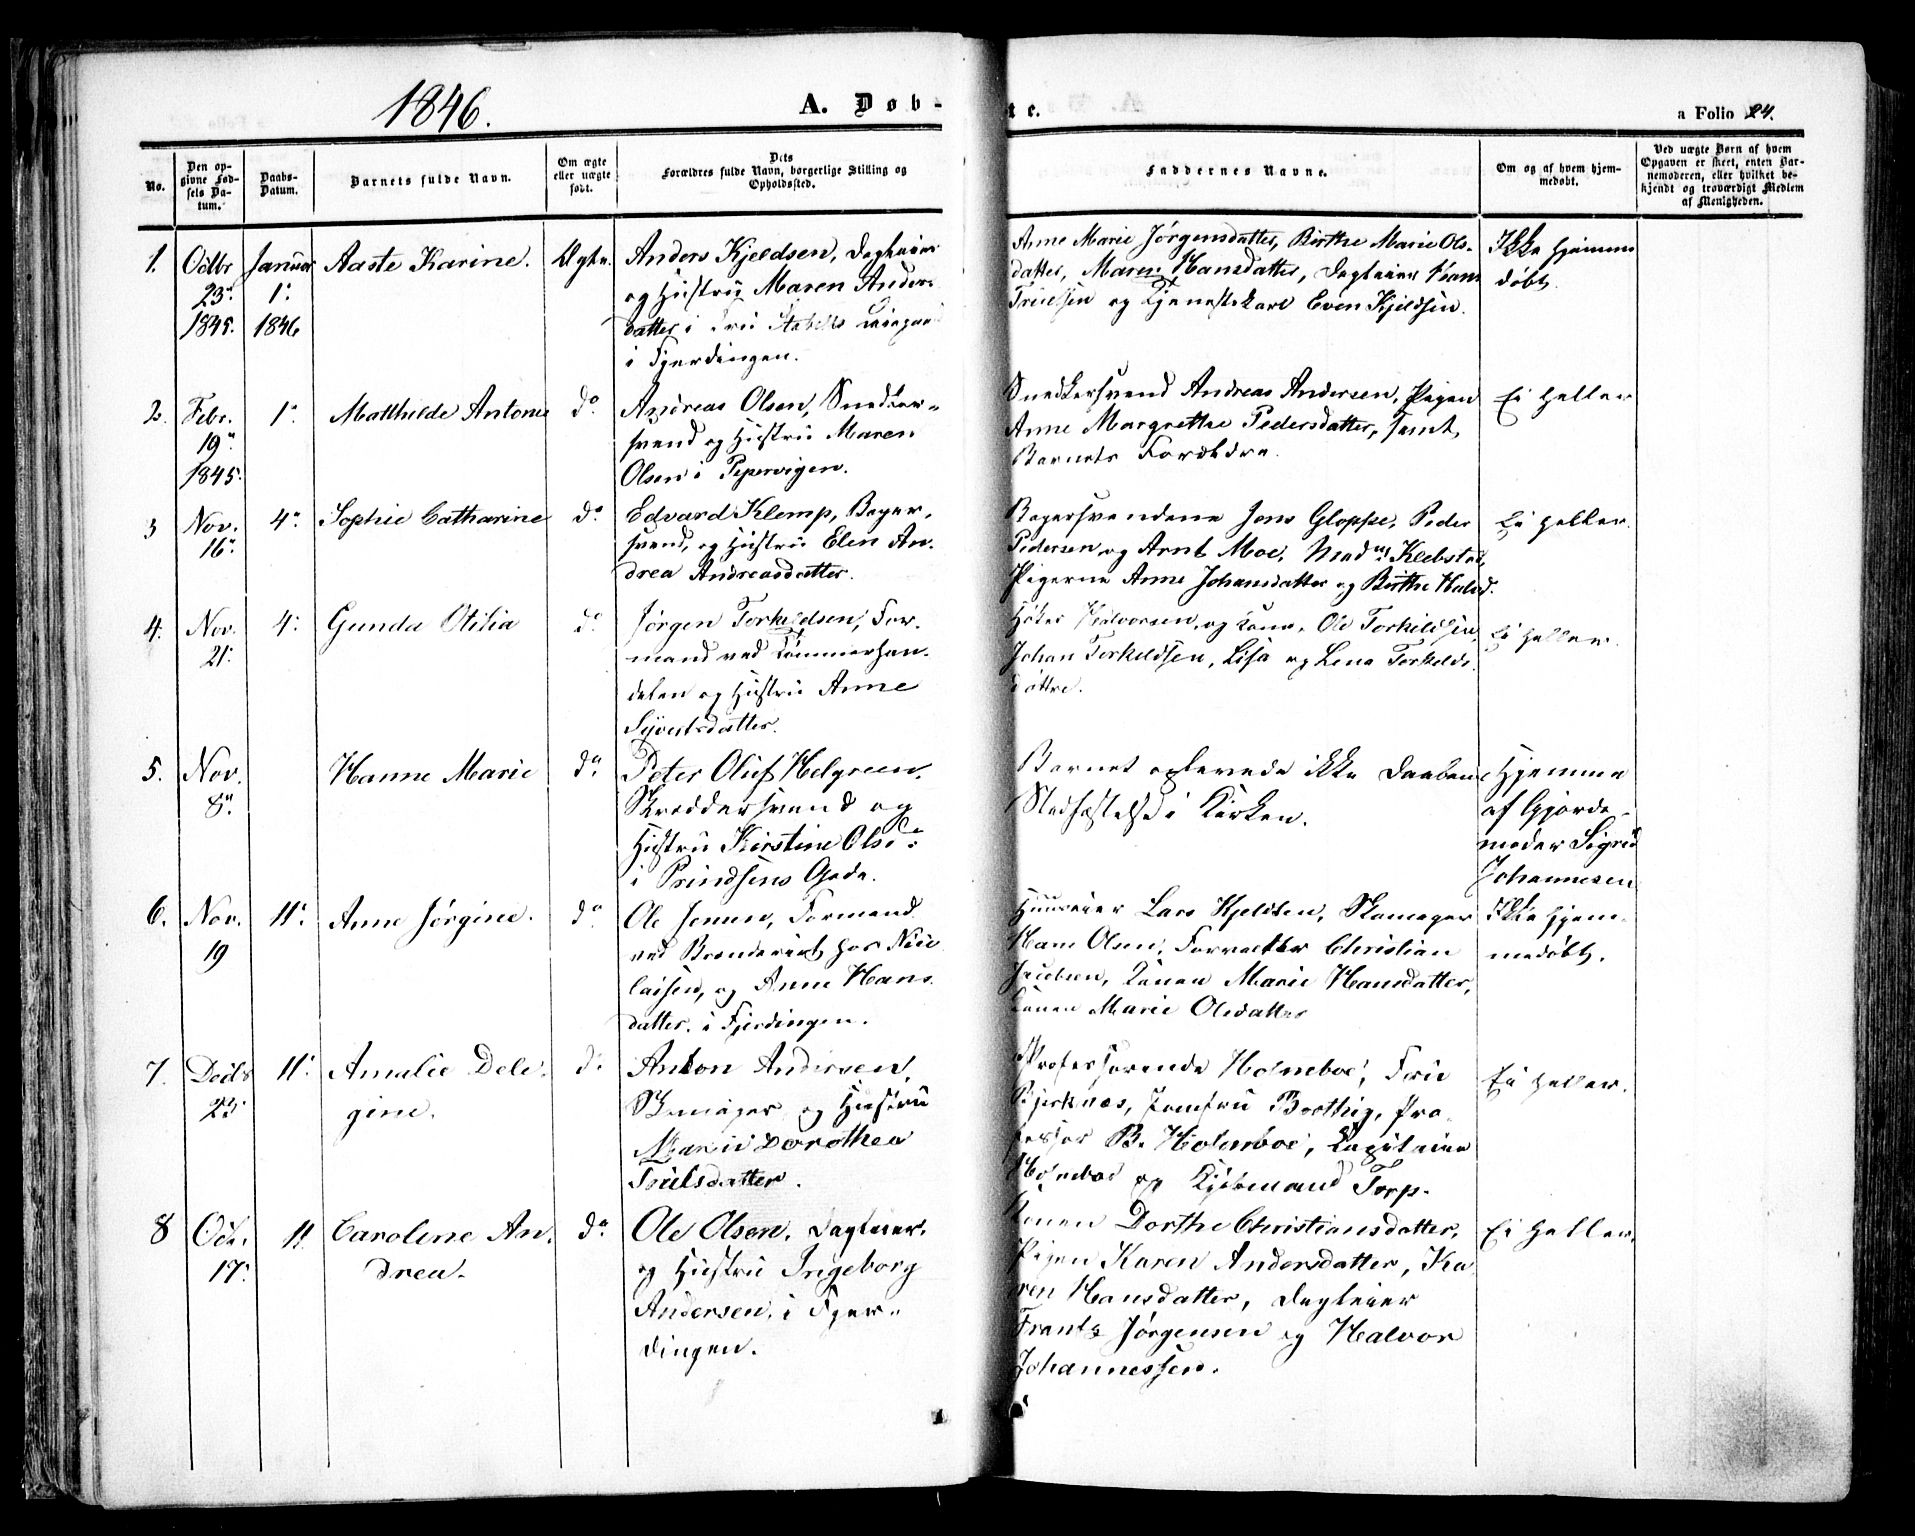 1846.
A. Døb-
te.
a Folio 24.
No.
Den op-
givne Fød-
sels Da-
tum.
Daabs-
Datum.
Barnets fulde Navn.
Om ægte
eller uægte
født.
Dets
Forældres fulde Navn, borgerlige Stilling og
Opholdssted.
Faddernes Navne.
Om og af hvem hjem-
medøbt.
Ved uægte Børn af hvem
Opgaven er skeet, enten Bar-
nemoderen, eller hvilket be-
kjendt og troværdigt Medlem
af Menigheden.
1.
Octbr
23.
1845.
Januar
1.
1846
Aaste Karine.
Ægte.
Anders Kjeldsen, Dagleier
og Hustru Maren Anders
datter i Fru Stabells
i Fjerdingen.
Anne Marie Jørgensdatter, Birthe Marie Ols-
datter, Maren Hansdatter, Dagleier Hans
Truelsen og Tjenestekarl Even Kjeldsen.
Ikke hjemme
døbt.
2.
Febr.
19.
1845.
1.
Matthilde Antonie
do.
Andreas Olsen, Snedker-
svend og Hustru Maren
Olsen i Pipervigen.
Snedkersvend Andreas Andersen, Pigen
Anne Margrethe Pedersdatter, samt
Barnets Forældre.
Ei heller
3
Nov.
16.
4.
Sophie Catharine
do.
Edvard Klemp, Bager-
svend, og Hustru Elen An-
drea Andreasdatter.
Bagersvendene Jens Gloppe, Peder
Pedersen og Arnt Moe, Mad. Klebstad,
Pigerne Anne Johansdatter og Birthe Halvd.
Ei heller.
4.
Nov.
21.
4.
Gunda Otilia
do.
Jørgen Torkeldsen, For-
mand ved Tømmerhan-
delen og Hustru Anne
Syvertsdatter.
Høker Halvorsen og Kone, Ole Torkildsen,
Johan Torkeldsen, Lisa og Lena Torkelds-
døttre.
Ei heller.
5.
Nov.
8.
Hanne Marie
do.
Peter Oluf Helgreen,
Skreddersvend og
Hustru Kirstine Olsd.
i Prindsens Gade.
Barnet oplevede ikke Daabens
Stadfæstelse i Kirken.
Hjemme
af Gjorde-
moder Sigrid
Johannesen
6.
Nov.
19
11.
Anne Jørgine.
do.
Ole Jensen, Formand
ved Brænderiet hos Nico
laisen, og Anne Hans
datter. i Fjerdingen.
Huuseier Lars Kjeldsen, Skomager
Hans Olsen, Forvalter Christian
Jacobsen, Konen Marie Hansdatter,
Konen Marie Olsdatter
Ikke hjem-
medøbt.
7.
Decbr
23
11.
Amalie Dele-
gine.
do.
Anton Andersen
Skomager og Hustru
Marie Dorothea
Truelsdatter.
Professorinde Holmboe, Frue
Bjerknæs, Jomfru Borthig, Pro-
fessor B. Holmboe, Capitaine
Holmboe og Kjøbmand Torp.
Ei heller.
8
Oct.
17.
11.
Caroline An-
drea.
do.
Ole Olsen, Dagleier,
og Hustru Ingeborg
Andersen, i Fjer-
dingen.
Konen Dorthe Christiansdatter,
Pigen Karen Andersdatter, Ka
ren Hansdatter, Dagleier
Frantz Jørgensen og Halvor
Johannessen.
Ei heller.